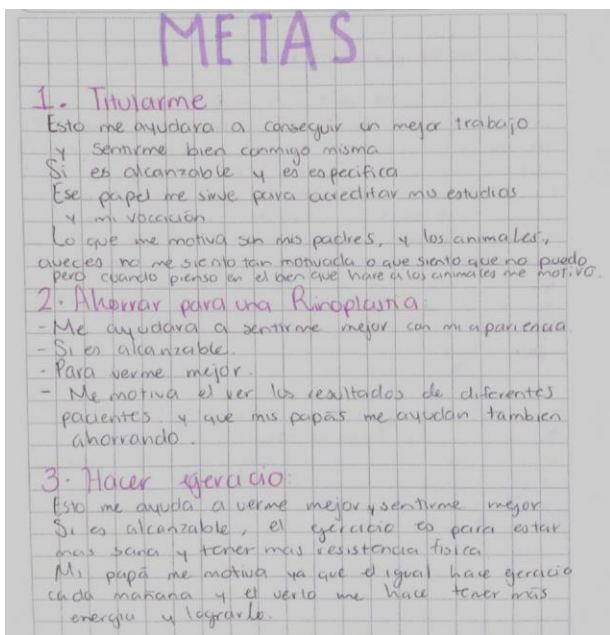 METAS
1. Titularme
Esto me ayudara a conseguir un mejor trabajo
y sentirme bien conmigo misma
Si es alcanzable y es especifica
Ese papel me sirve para acreditar mis estudios
y mi vocación
Lo que me motiva son mis padres, y los animales,
aveces no me siento tan motivada o que siento que no puedo
pero cuando pienso en el bien que hare a los animales me motivo.
2. Ahorrar para una Rinoplastia
- Me ayudara a sentirme mejor con mi apariencia
- Si es alcanzable.
- Para verme mejor.
- Me motiva el ver los resultados de diferentes
pacientes y que mis papás me ayudan tambien
ahorrando.
3. Hacer ejeracio
Esto me ayuda a verme mejor y sentirme mejor
Si es alcanzable, el ejercicio es para estar
mas sana y tener mas resistencia fisica
Mi papá me motiva ya que el igual hace ejercicio
cada mañana y el verlo me hace tener más
energia y lograrlo.